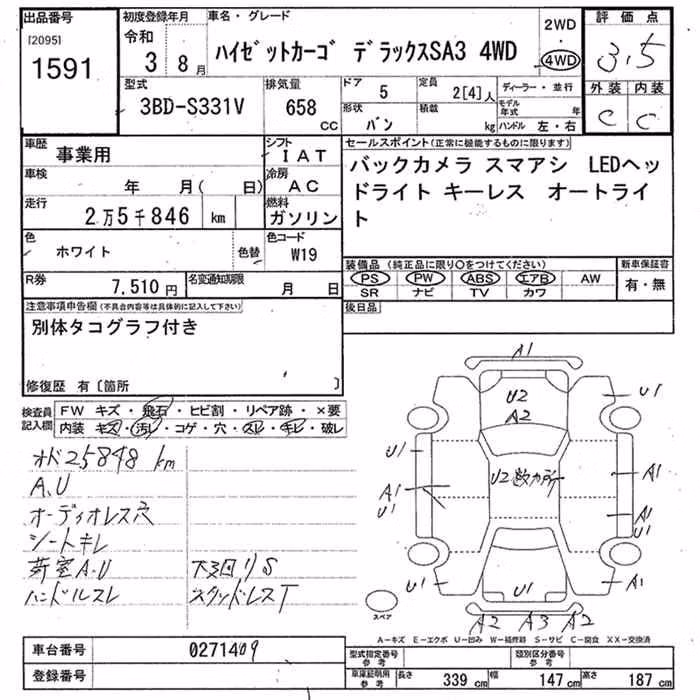 出品番号
[2095]
1591
初度登録年月
令和
3 8 月
車名・グレード
ハイゼットカーゴ デラックスSA3 4WD
2WD
・
4WD
評価点
3.5
外装 内装
C C
型式
3BD-S331V
排気量
658
CC
ドア
5
定員
2[4]人
形状
バン
積載
kg
ディーラー・並行
モデル年式 年
ハンドル 左・右
車歴
事業用
シフト
IAT
車検
年 月( 日)
冷房
AC
走行
2万5千846 km
燃料
ガソリン
色
ホワイト
色替
色コード
W19
R券
7,510円
名変通知期限
月 日
セールスポイント(正常に機能するものに限ります)
バックカメラ スマアシ LEDヘッ
ドライト キーレス オートライ
ト
装備品 (純正品に限り○をつけてください)
PS PW ABS エアB AW
SR ナビ TV カワ
新車保証書
有・無
後日品
注意事項申告欄(不具合内容等は具体的に記入して下さい)
別体タコグラフ付き
修復歴 有〔箇所 〕
検査員記入欄
FW キズ・飛石・ヒビ割・リペア跡・×要
内装 キズ・汚レ・コゲ・穴・スレ・キレ・破レ
オド25848 km
A.U
オーディオレス穴
シートキレ
荷室A.U
下廻りS
ハンドルスレ
スタッドレスT
A1
U2
A2
U1
U1
U2 数カ所
A1
A1
U1
A1
U1
U1
U1
A1
A2 A3 A2
スペア
A-キズ E-エクボ U-凹み W-補修跡 S-サビ C-腐食 XX-交換済
車台番号
0271409
登録番号
型式指定番号
参考
類別区分番号
参考
車庫証明用
参考
長さ 339 cm 幅 147 cm 高さ 187 cm